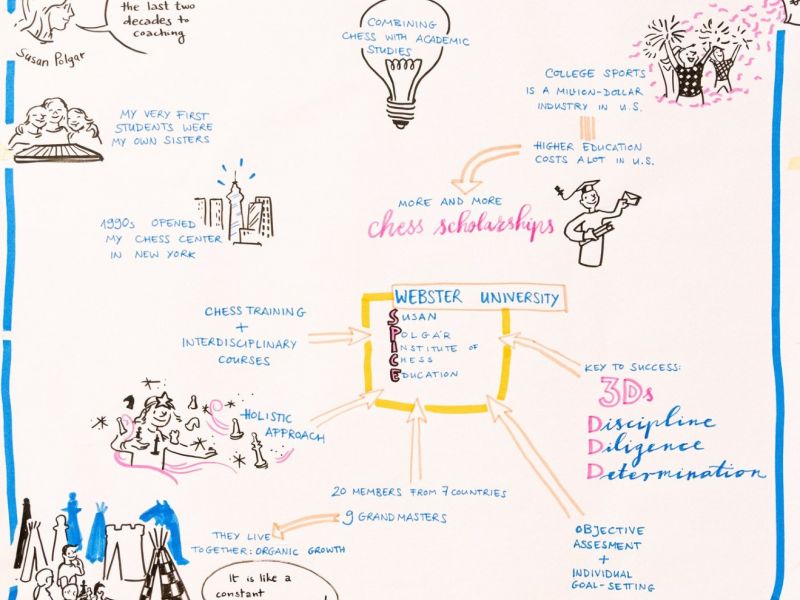 the last two
decades to
coaching
Susan Polgar
COMBINING
CHESS WITH ACADEMIC
STUDIES
COLLEGE SPORTS
IS A MILLION-DOLLAR
INDUSTRY IN U.S.
MY VERY FIRST
STUDENTS WERE
MY OWN SISTERS
HIGHER EDUCATION
COSTS ALOT IN U.S.
MORE AND MORE
chess scholarships
1990s OPENED
MY CHESS CENTER
IN NEW YORK
WEBSTER UNIVERSITY
SUSAN
POLGÁR
INSTITUTE OF
CHESS
EDUCATION
CHESS TRAINING
+
INTERDISCIPLINARY
COURSES
KEY TO SUCCESS:
3Ds
Discipline
Diligence
Determination
HOLISTIC
APPROACH
20 MEMBERS FROM 7 COUNTRIES
9 GRANDMASTERS
THEY LIVE
TOGETHER: ORGANIC GROWTH
OBJECTIVE
ASSESMENT
+
INDIVIDUAL
GOAL-SETTING
It is like a
constant